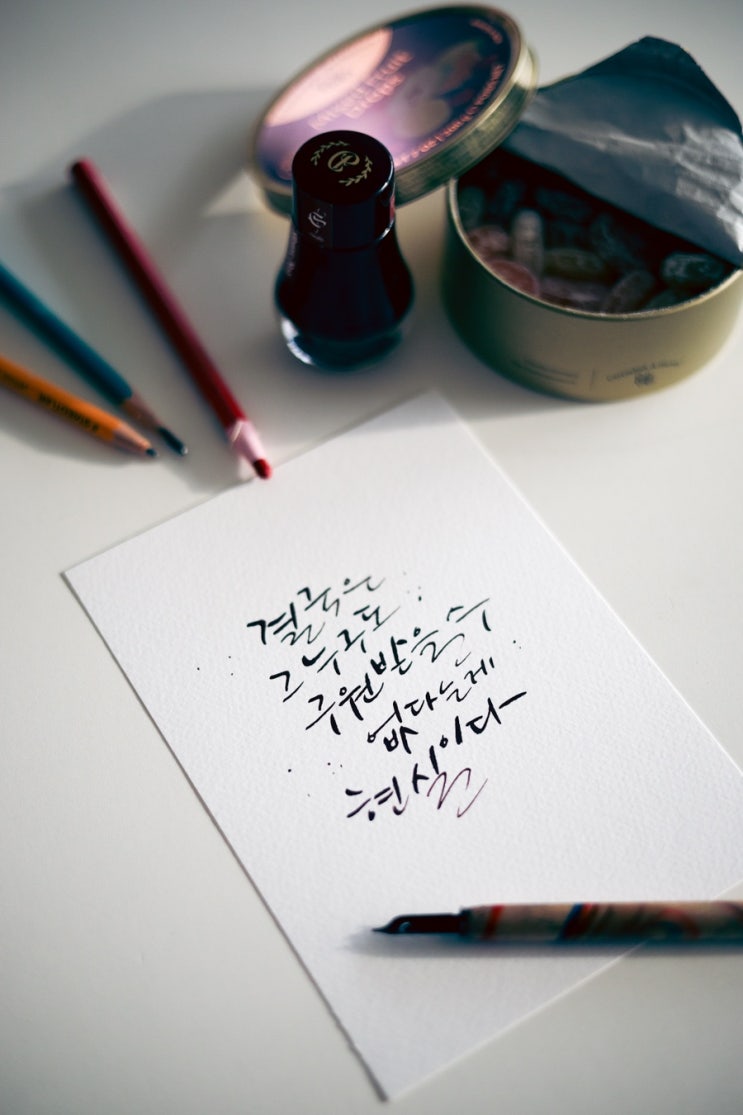 결국은
그 누구도
구원 받을 수
없다는게
현실이다